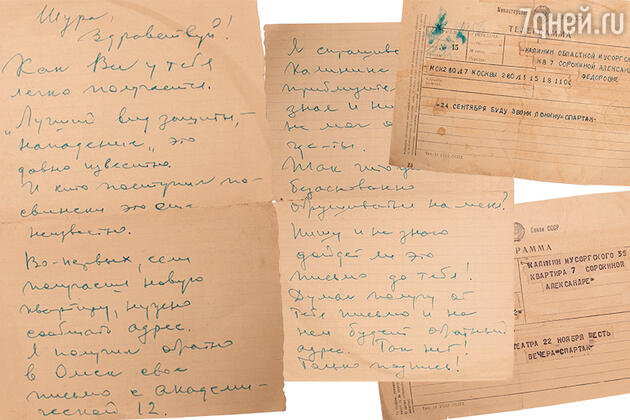 Шура,
Здравствуй!
Как Все у тебя
легко получается.
„Лучший вид защиты,
нападение“, это
давно известно.
И кто поступил по-
свински это еще
неизвестно.
Во-первых, если
получаешь новую
квартиру, нужно
сообщать адрес.
Я получил обратно
в Омск свое
письмо с Академи-
ческой 12.
Я спрашивал
Калинине
знал и ни
не мог о
Так что
безосновано
обрушиваться на меня?
Пишу и не знаю
дойдет ли это
письмо до тебя!
Думал получу от
тебя письмо и на
нем будет обратный
адрес. Так нет!
Только подпись!
7дней.ru
Министерство
ТЕЛЕГРАММА
15
КАЛИНИН ОБЛАСТНОЙ МУСОРГСКОГО
КВ 7 СОРОКИНОЙ АЛЕКСАНДРЕ
ФЕДОРОВНЕ
МСК МОСКВЫ 15 18 1100
=24 СЕНТЯБРЯ БУДУ ЗВОНИ ЛОНИНУ=СПАРТАК-
Связи СССР
ГРАММА
КАЛИНИН МУСОРГСКОГО 35
КВАРТИРА 7 СОРОКИНОЙ
АЛЕКСАНДРЕ=
ТЕАТРА 22 НОЯБРЯ ШЕСТЬ
ВЕЧЕРА=СПАРТАК-